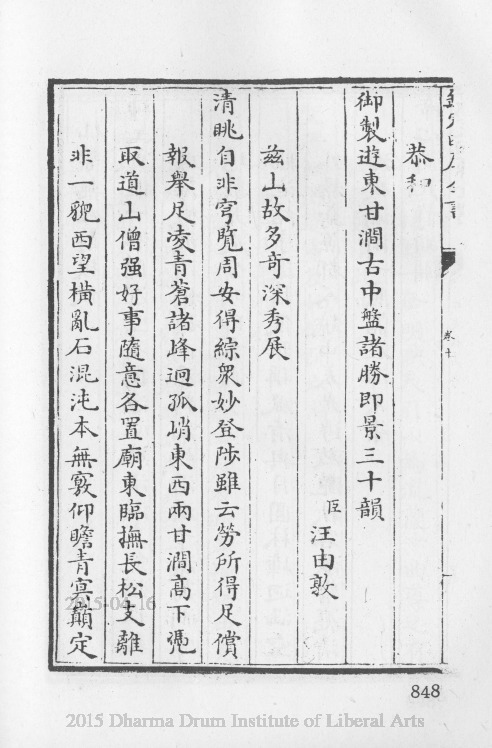 欽定四庫全書
卷十
恭和
御製遊東甘澗古中盤諸勝即景三十韻
臣汪由敦
茲山故多奇深秀展
清眺自非穹覽周安得綜衆妙登陟雖云勞所得足償
報舉足凌青蒼諸峰迥孤峭東西兩甘澗高下凴
取道山僧强好事隨意各置廟東臨撫長松支離
非一貌西望橫亂石混沌本無竅仰瞻青冥巔定
848
2015-04-16
2015 Dharma Drum Institute of Liberal Arts